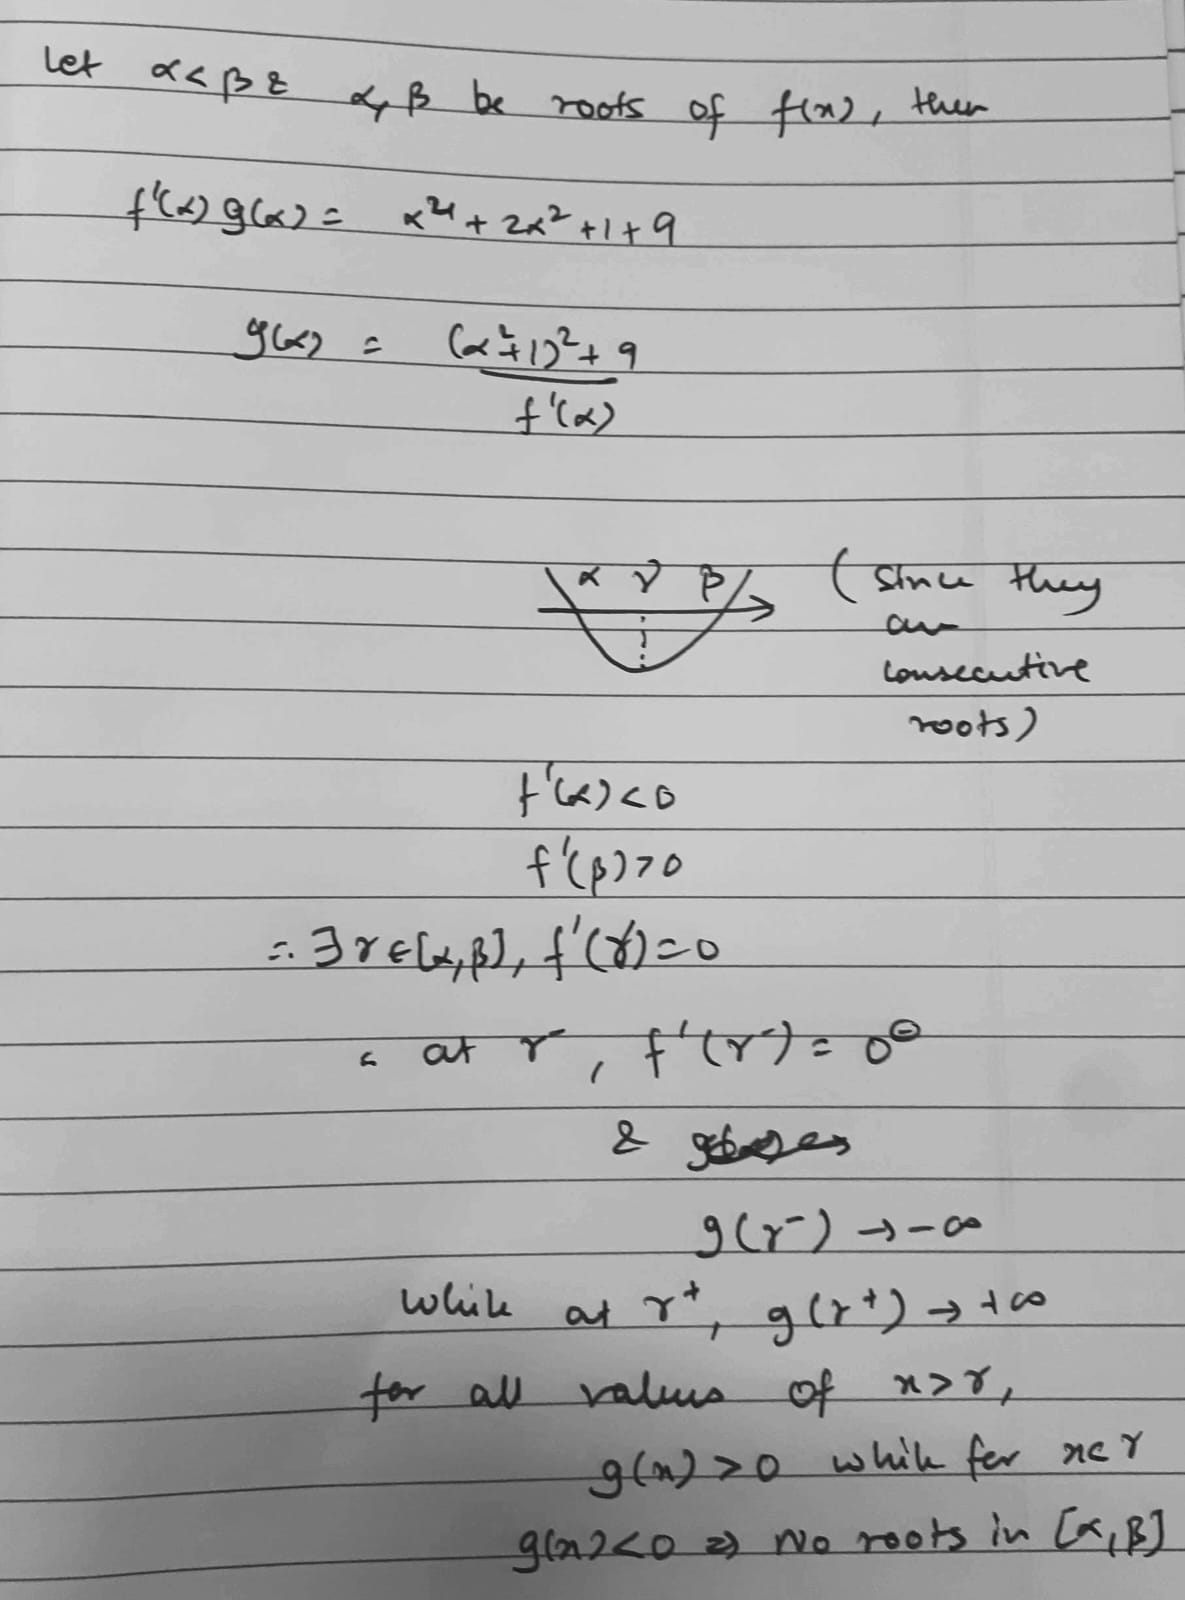 Let α<β & α, β be roots of f(x), then
f'(α) g(α) = α⁴ + 2α² + 1 + 9
g(α) = (α²+1)² + 9
f'(α)
α γ β (since they
are
consecutive
roots)
f'(α)<0
f'(β)>0
∴ ∃ γ∈[α,β], f'(γ)=0
at γ⁻, f'(γ⁻) = 0⊖
&
g(γ⁻) → -∞
while at γ⁺, g(γ⁺) → +∞
for all values of x>γ,
g(x)>0 while for x<γ
g(x)<0 ⇒ No roots in [α,β]